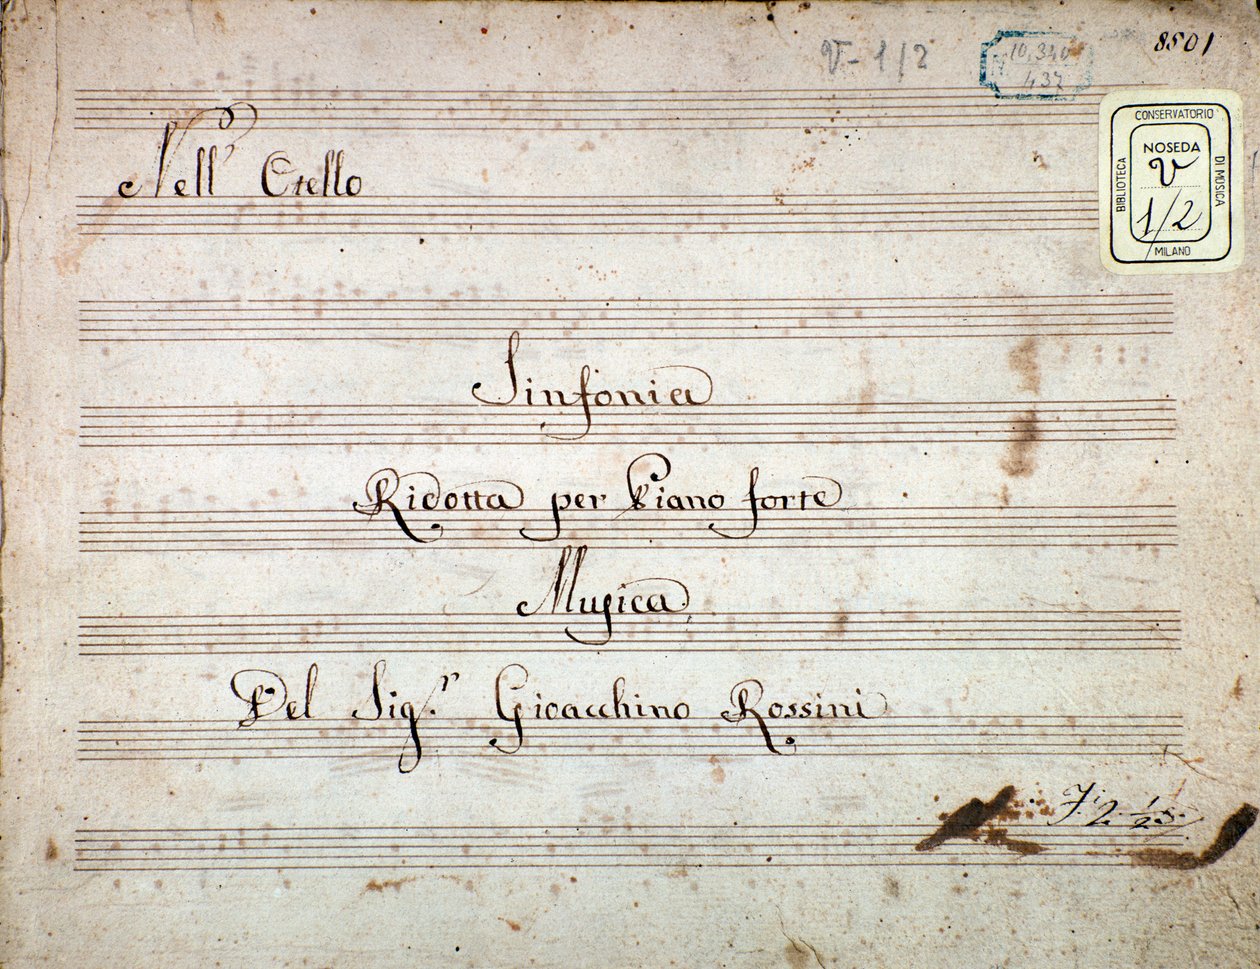 V-1/2
10,340
437
8501
CONSERVATORIO
BIBLIOTECA
NOSEDA
DI MUSICA
V
1/2
MILANO
Nell' Otello
Sinfonia
Ridotta per Piano forte
Musica
Del Sig.r Gioacchino Rossini